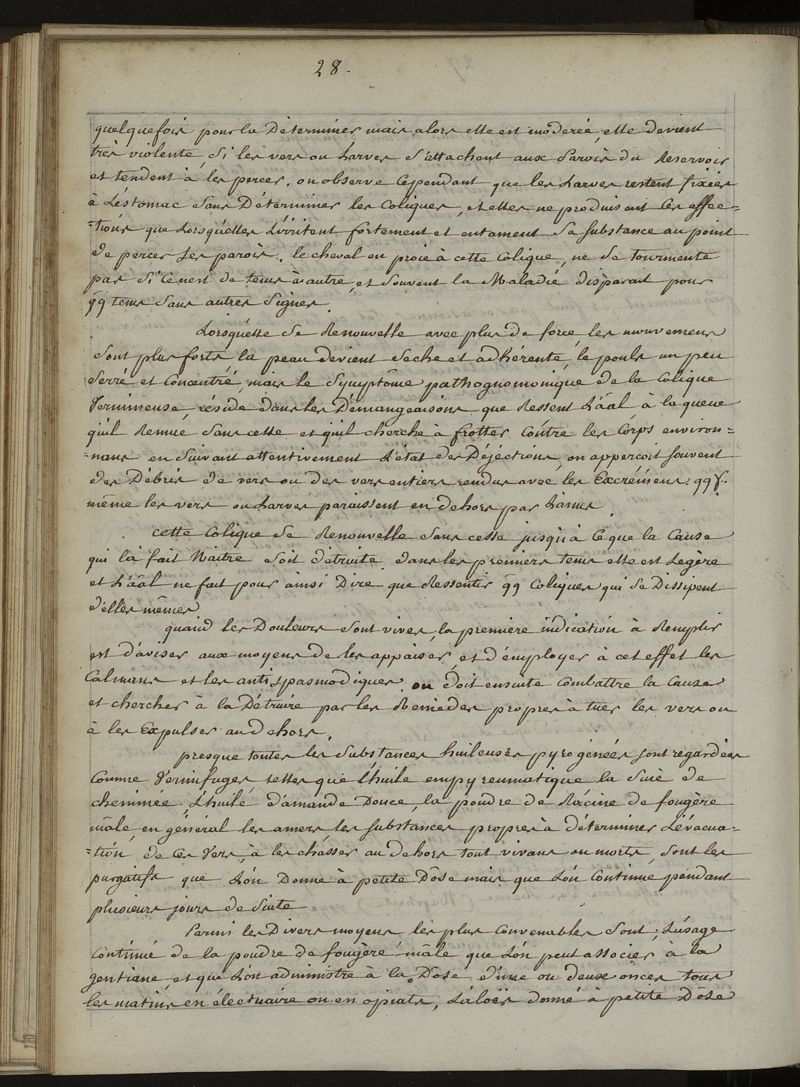 28.
quelquefois pour la Déterminer mais alors elle est moderée, elle devient
très violente, Si les vers ou Larves S'attachent aux Parois du Reservoir
et tendent à les percer. on observe Cependant que les Larves restent fixées
à Lestomac Sans Déterminer les Coliques, et elles ne produisent les affec=
=tions que Lorsqu'elles L'irritent fortement et entament Sa Substance au point
de percer Ses parois. le cheval en proie à cette Colique, ne Se tourmente
pas Si ce n'est de tems à autre, et Souvent la Maladie disparait pour
qq tems Sans autres Signes.
Lorsqu'elle Se Renouvelle avec plus de force les mouvemens
Sont plus forts la peau devient Seche et adhérente, le pouls un peu
Serré et Concentré, mais le Symptôme pathognomonique de la Colique
Vermineuse, réside dans les Démangeaisons que Ressent L'aal à la queue
qu'il Remue Sans cesse et qu'il cherche à frotter Contre les Corps environ=
=nans en Suivant attentivement L'état des Déjections, on apperçoit Souvent
des Débris de vers ou des vers entiers rendus avec les Excrémens; qqf.
même les vers ou Larves paraissent en dehors par L'anus.
cette Colique Se Renouvelle Sans cesse jusqu'à ce que la Cause
qui l'a fait Naitre Soit détruite. dans les premiers tems elle est Legère
et L'aal ne fait pour ainsi Dire que Ressentir qq Coliques qui Se Dissipent
d'elles mêmes
quand les Douleurs Sont vives, la première indication à Remplir
est d'aviser aux moyens de les appaiser, et d'employer à cet effet les
Calmans et les antispasmodiques. on doit ensuite Combattre la Cause
et chercher à la Détruire par les Remèdes propres à tuer les vers ou
à les Expulser au dehors.
presque toutes les Substances huileuses pyrogénées sont regardées
Comme Vermifuges, telles que l'huile empyreumatique la Suie de
cheminée L'huile d'amande Douce, la poudre de Racine de fougère
mâle, en général les amers, les Substances propres à déterminer L'évacua=
=tion de ces Vers, à les châsser au dehors tout vivans ou morts, Sont les
purgatifs que L'on Donne à petite Dôse mais que L'on Continue pendant
plusieurs jours de Suite
Parmi les Divers moyens les plus Convenables Sont; L'usage
Continué de la poudre de fougère mâle que L'on peut associer à la
gentiane, et que L'on administre à la Dôse d'une ou deux onces tous
les matins en électuaire ou en opiats, L'aloës donné à petite Dôse